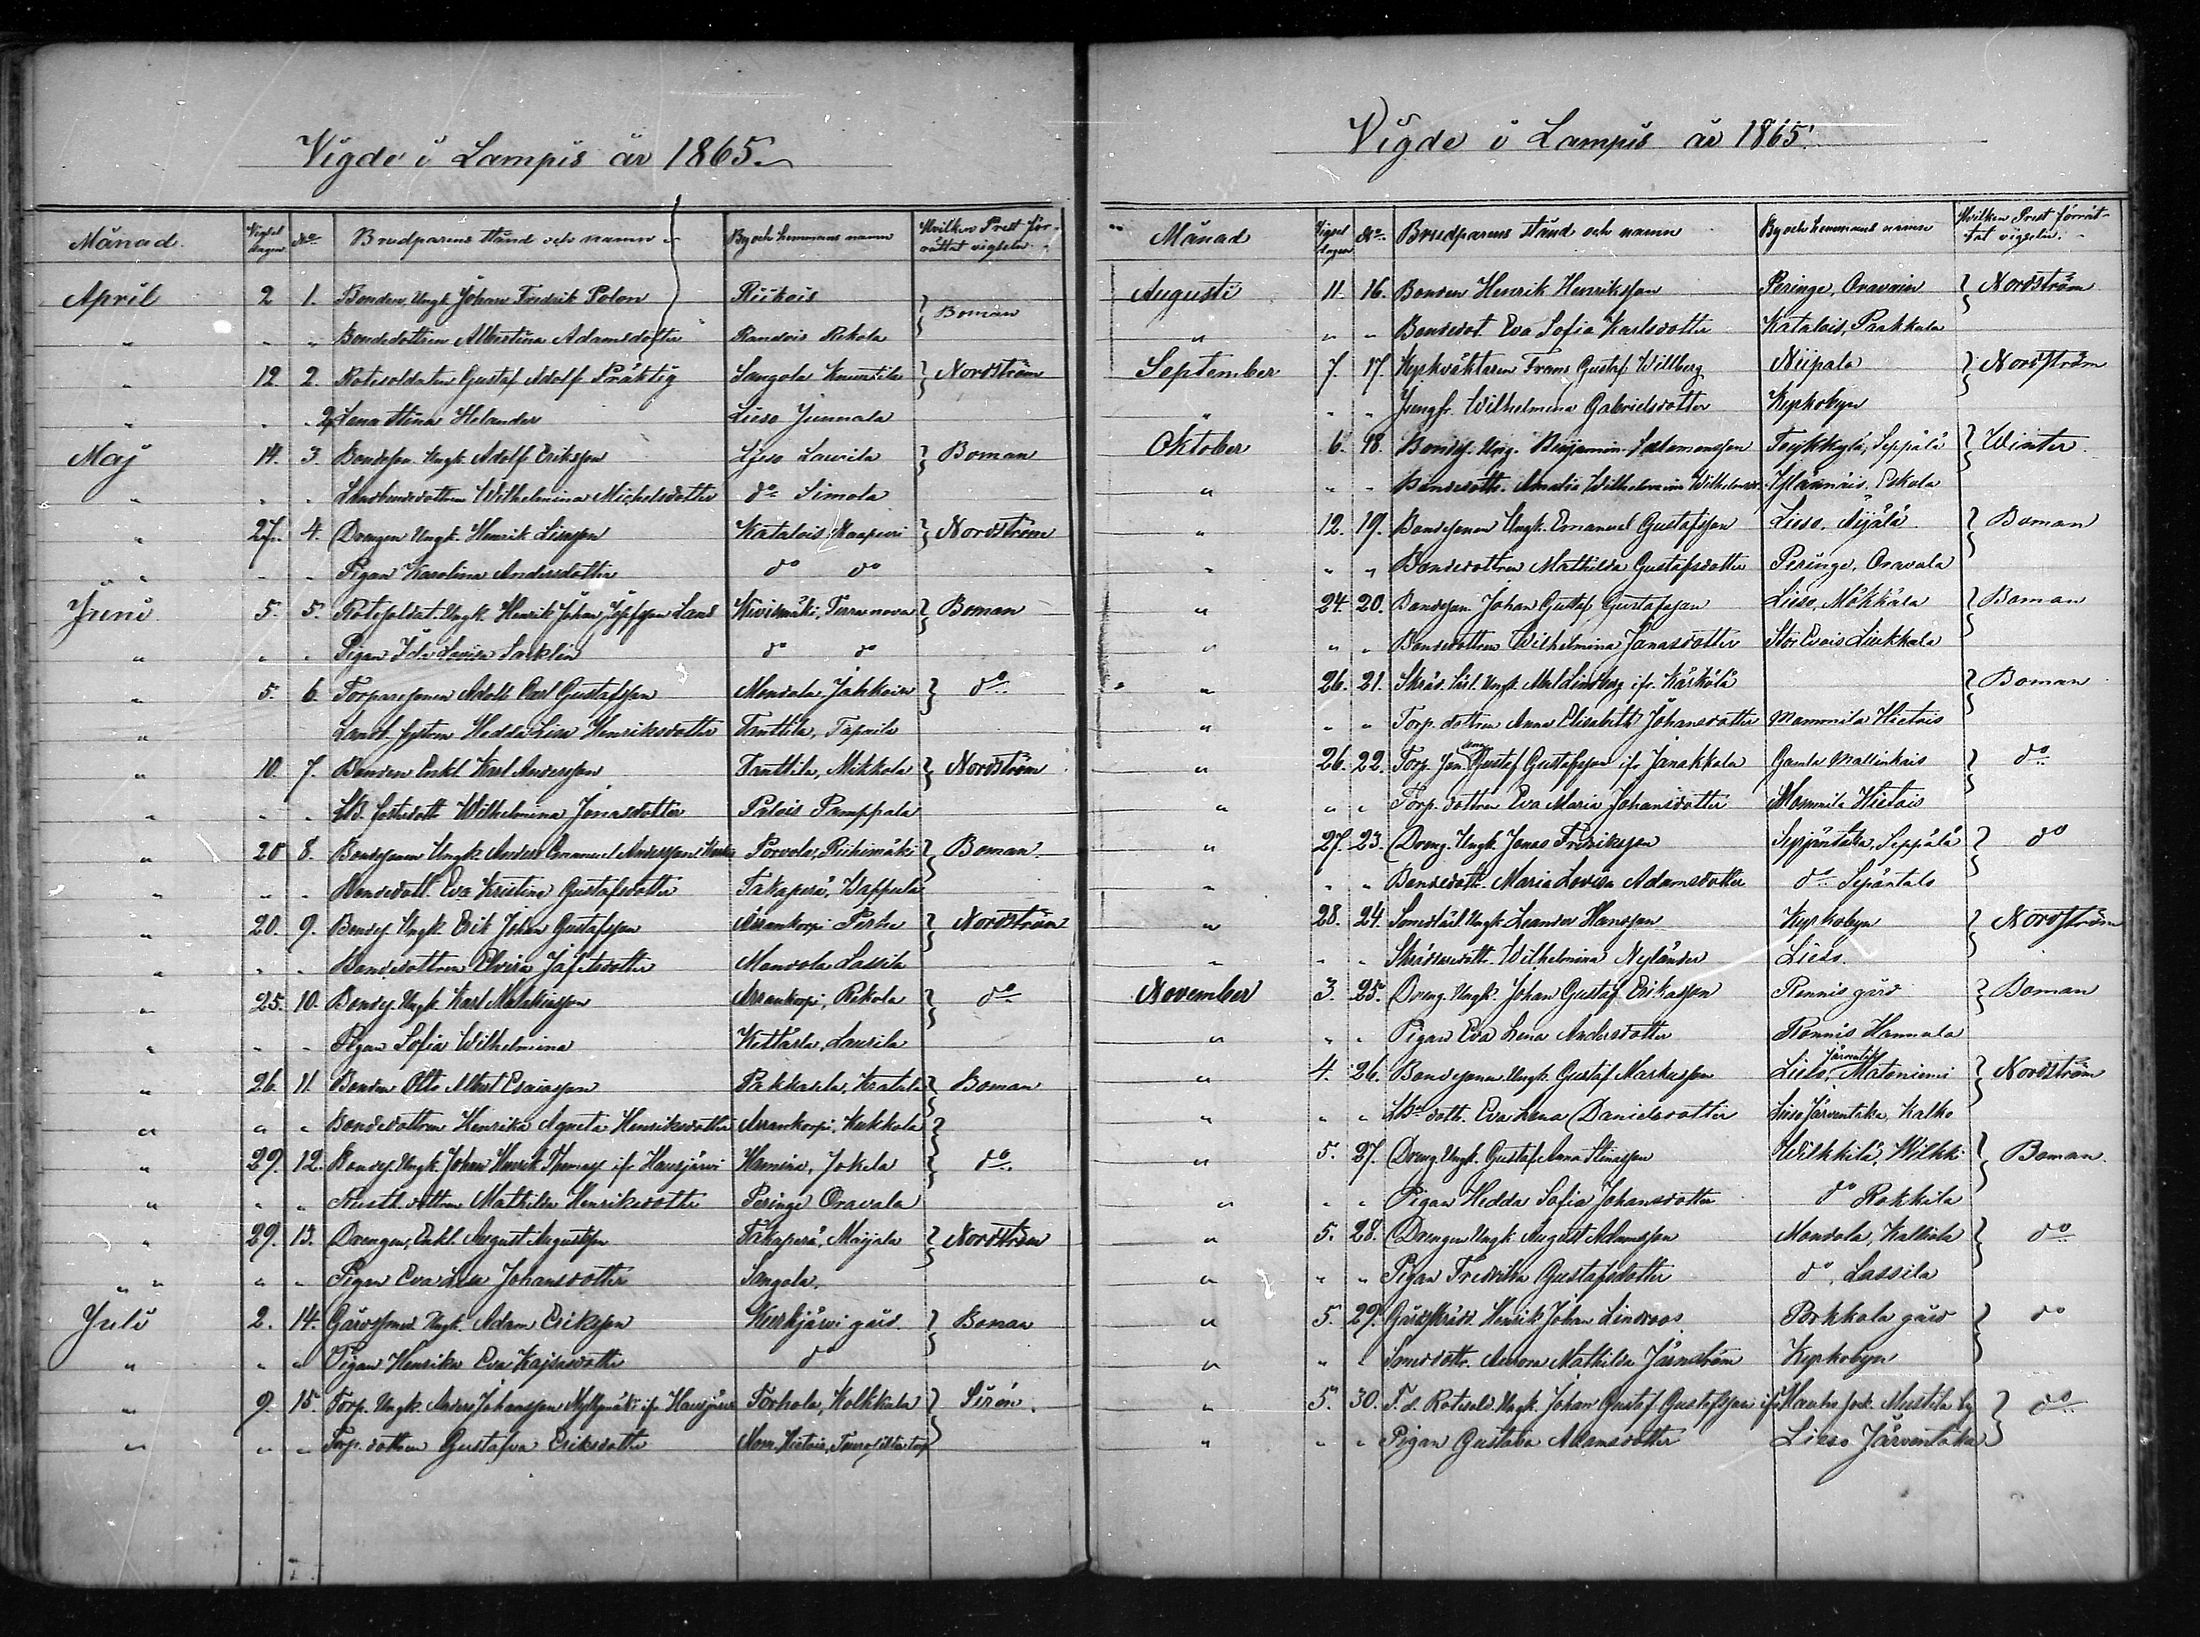 Vigde i Lampis år 1865.
Månad Vigsel dagen No Brudparens stånd och namn By och hemmans namn Hvilken Prest förrättat vigseln
April 2 1. Bonden Ungk Johan Fredrik Polon Riikois } Boman
" " " Bondedottren Albertina Adamsdotter Randois Rekola
" 12 2. Rotesoldaten Gustaf Adolf Präktig Sangola Knuutila } Nordström
" " " Lena Stina Helander Lieso Junnala
Maj 14. 3. Bondeson Ungk. Adolf Eriksson Lieso Laurila } Boman
" " " Landbondedottren Wilhelmina Michelsdotter do Simola
" 27. 4. Drengen Ungk. Henrik Liisson Katalois Kaapuri } Nordström
" " " Pigan Karolina Andersdotter do do
Juni 5. 5. Rotesoldat. Ungk. Henrik Johan Land Kivismäki, Terranova } Boman
" " " Pigan Ida Lovisa Sarklin do do
" 5. 6. Torparesonen Adolf Carl Gustafsson Mondala, Jahkoin } do
" Landb. system Hedda Lisa Henriksdotter Tanttila, Tapaila
" 10. 7. Bonden Enkl. Karl Andersson Tanttila, Mikkola } Nordström
" " " Wilhelmina Jonasdotter Pålois Pamppala
" 20 8. Bondesonen Ungk. Anders Emanuel Andersson Porvola, Riihimäki } Boman
" " " Bondedott. Eva Kristina Gustafsdotter Takaperä, Kappula
" 20. 9. Bondes. Ungk. Erik Johan Gustafsson Arrankorpi Perhe } Nordström
" " " Bondedottren Elvira Jafetsdotter Mondola Lassila
" 25. 10. Bondes. Ungk. Karl Malakiasson Arrankorpi, Rekola } do
" " " Pigan Sofia Wilhelmina Kettarla, Laurila
" 26. 11. Bonden Otto Albert Esaiasson Pakkasela, Kratula } Boman
" " " Bondedottren Henrika Agneta Henriksdotter Arrankorpi, Kukkola }
" 29. 12. Bondes. Ungk. Johan Henrik Thomass. ifr. Hausjärvi Hamina, Jokela } do
" " " Rusth. dottren Mathilda Henriksdotter Peringe Oravala
" 29. 13. Drengen, Enkl. August Augustsson Takaperä, Maijala } Nordström
" " " Pigan Eva Lisa Johansdotter Sangola.
Juli 2. 14. Gårdssmed. Ungk. Adam Eriksson Kurkjärvi gård } Boman
" " " Pigan Henrika Eva Kajsasdotter do
" 9. 15. Torp. Ungk. Anders Johansson Myllymäki ifr. Hausjärvi Torhola, Kolkkala } Sirén.
" " " Torp. dottren Gustafva Eriksdotter Mom. Hietois,
Vigde i Lampis år 1865.
Månad Vigsel dagen No Brudparens stånd och namn By och hemmans namn Hvilken Prest förrättat vigseln.
Augusti 11. 16. Bonden Henrik Henriksson Peringe, Oravain } Nordström
" " " Bondedot. Eva Sofia Karlsdotter Katalois, Paakkala
September 7. 17. Kyrkväktaren Frans Gustaf Willberg Niipala } Nordström
" " " Jungfr. Wilhelmina Gabrielsdotter Kyrkobyn
Oktober 6. 18. Bondes. Ung. Benjamin Salomonsson Tuykkylä, Seppälä } Winter
" " " Bondedottr. Amalia Wilhelmina Wilhelmsd. Ylänäis, Eskola
" 12. 19. Bondesonen Ungk. Emanuel Gustafsson Lieso, Äijälä } Boman
" " " Bondedottren Mathilda Gustafsdotter Peringe, Oravala
" 24. 20. Bondeson. Johan Gustaf Gustafsson Lieso, Mökkälä } Boman
" " " Bondedottren Wilhelmina Jonasdotter Stor Evois Liukkala
" 26. 21. Skräd. lärl. Ungk. Mal. Lindberg ifr. Kärkölä } Boman
" " " Torp. dottren Anna Elisabeth Johansdotter Mommila Hietois
" 26. 22. Torp. son. Gustaf Gustafsson ifr. Janakkala Gamla Mallinkais } do
" " " Torp. dottren Eva Maria Johansdotter Mommila Hietois
" 27. 23. Dreng. Ungk. Jonas Fredriksson Syrjäntaka, Seppälä } do
" " " Bondedottr. Maria Lovisa Adamsdotter do
" 28. 24. Smedslärl. Ungk. Leander Hansson Kyrkobyn } Nordström
" " " Skräddaredottr. Wilhelmina Nyländer Lieso.
November 3. 25. Dreng. Ungk. Johan Gustaf Eriksson Ronnis gård } Boman
" " " Pigan Eva Lena Andersdotter Ronnis Hannula
" 4. 26. Bondesonen Ungk. Gustaf Markusson Lieso, Järventak. Matoniemi } Nordström
" " " dottr. Eva Lena Danielsdotter Lieso Järventaka, Kalho
" 5. 27. Dreng. Ungk. Gustaf Anna Stinasson Wilkkilä, Wilkki } Boman.
" " " Pigan Hedda Sofia Johansdotter do Rokkila
" 5. 28. Drengen Ungk August Adamsson Mondola, Kalliola } do
" " " Pigan Fredrika Gustafsdotter do, Lassila
" 5. 29. Gårdsskrädd. Henrik Johan Lindroos Porkkala gård } do
" " " Smeddottr. Aurora Mathilda Järnström Kyrkobyn
" 5. 30. F. d. Rotesold. Ungk. Johan Gustaf Gustafsson ifr Hauho sock. Mustila by } do
" " " Pigan Gustava Adamsdotter Lieso Järventaka